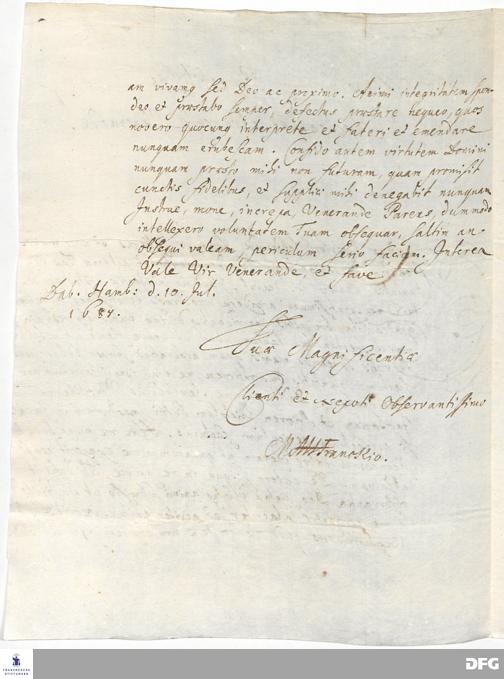 am vivamq sed Deo ac proximo. Animi integritatem spon-
deo et præstabo semper, defectus præstare nequeo, quos
novero quocunq interprete et fateri et emendare
nunquam erubescam. Confido autem virtutem Domini
nunquam præsto mihi non futuram, quam promisit
cunctis fidelibus, et supplici mihi denegabit nunquam
Instrue, mone, increpa, Venerande Parens, dummodo
intellexero voluntatem Tuam obsequar, saltim an
obsequi valeam, periculum serio faciam. Interea
Vale Vir Venerande, et fave
Dab. Hamb: d. 10. Jul.
1687.
Tuæ Magnificentiæ
Clienti et Nepoti Observantissimo
Franckio.
FRANCKESCHE
STIFTUNGEN
DFG